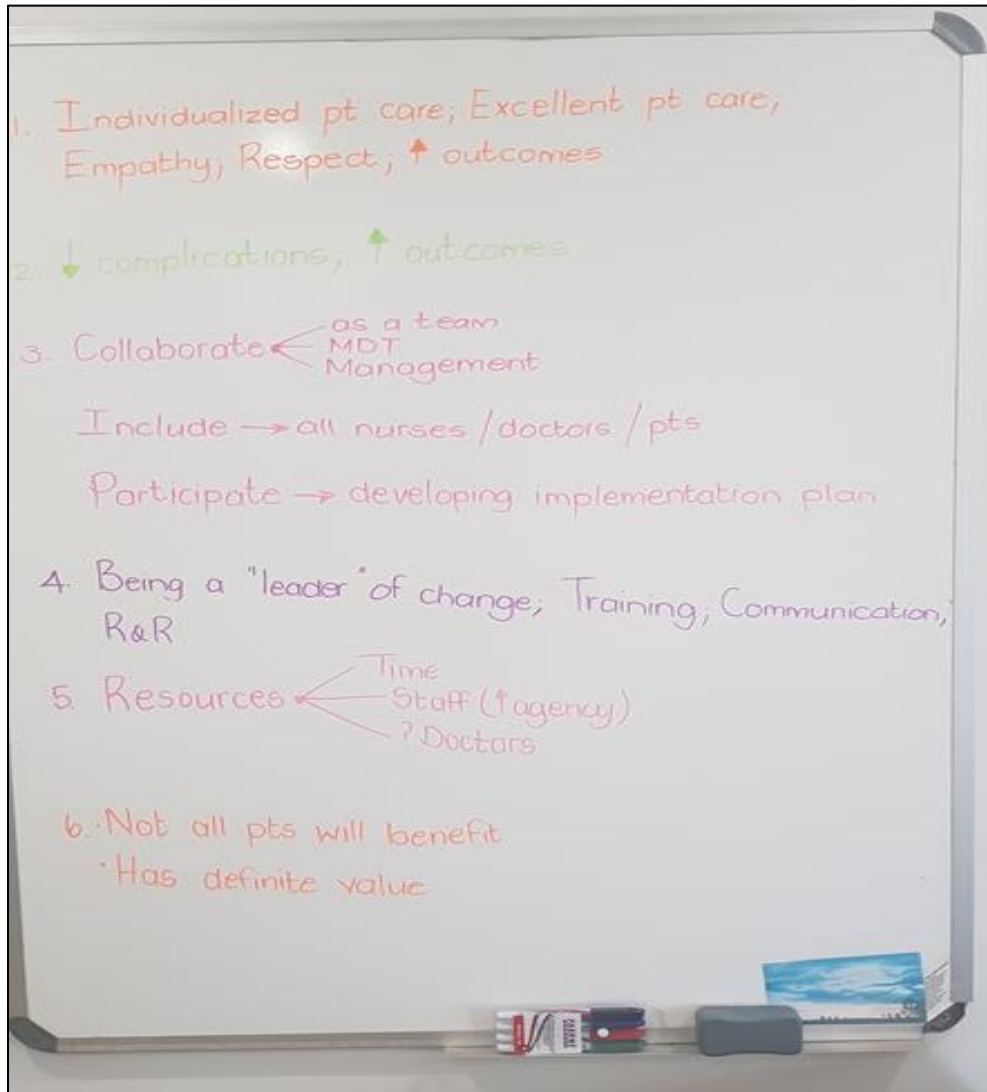 1. Individualized pt care; Excellent pt care,
Empathy, Respect, ↑ outcomes
2. ↓ complications; ↑ outcomes
3. Collaborate
as a team
MDT
Management
Include → all nurses / doctors / pts
Participate → developing implementation plan
4. Being a "leader" of change; Training; Communication;
R&R
5. Resources
Time
Staff (↑agency)
? Doctors
6. · Not all pts will benefit
· Has definite value